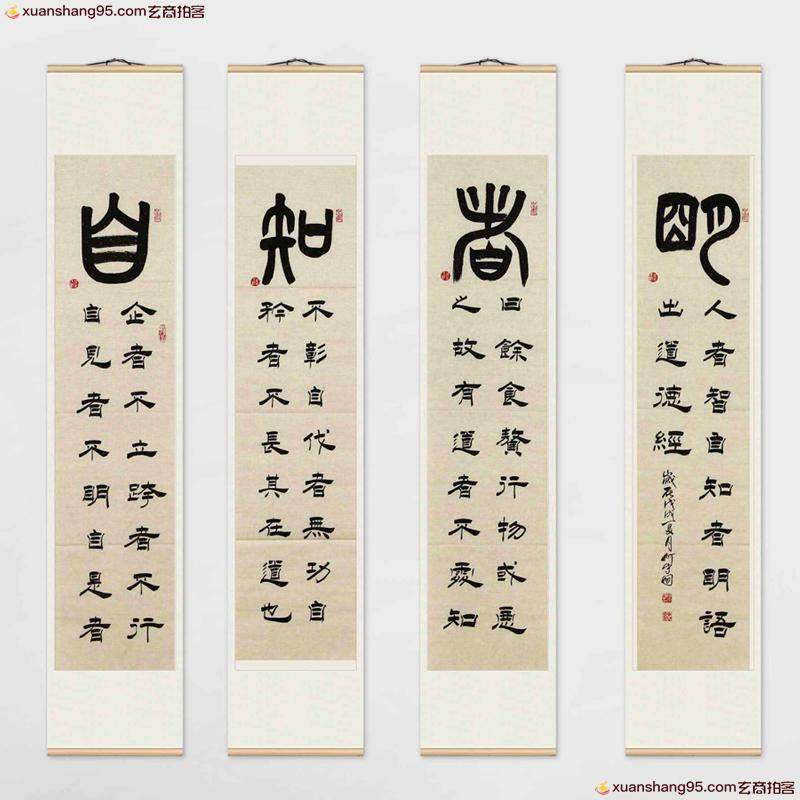 xuanshang95.com玄商拍客
自
企者不立跨者不行
自見者不明自是者
知
不彰自伐者無功自
矜者不長其在道也
者
曰餘食贅行物或惡
之故有道者不處知
明
人者智自知者明語
出道德經
歲在戊戌夏月
xuanshang95.com玄商拍客